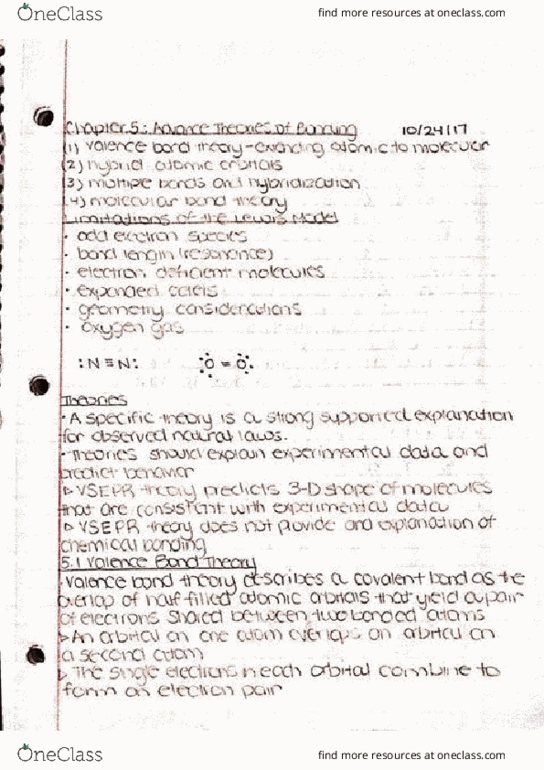 OneClass find more resources at oneclass.com
Chapter 5: Advance Theories of Bonding 10/24/17
(1) valence bond theory-extending atomic to molecular
(2) hybrid atomic orbitals
(3) multiple bonds and hybridization
(4) molecular bond theory
Limitations of the Lewis Model
· odd electron species
· bond length (resonance)
· electron deficient molecules
· expanded octets
· geometry considerations
· oxygen gas
:N≡N: :Ö=Ö:
Theories
· A specific theory is a strong supported explanation
for observed natural laws.
· Theories should explain experimental data and
predict behavior
▷ VSEPR theory predicts 3-D shape of molecules
that are consistent with experimental data
▷ VSEPR theory does not provide and explanation of
chemical bonding
5.1 Valence Bond Theory
· valence bond theory describes a covalent bond as the
overlap of half filled atomic orbitals that yield a pair
of electrons shared between two bonded atoms
▷ An orbital on one atom overlaps an orbital on
a second atom
▷ The single electrons in each orbital combine to
form an electron pair
OneClass find more resources at oneclass.com